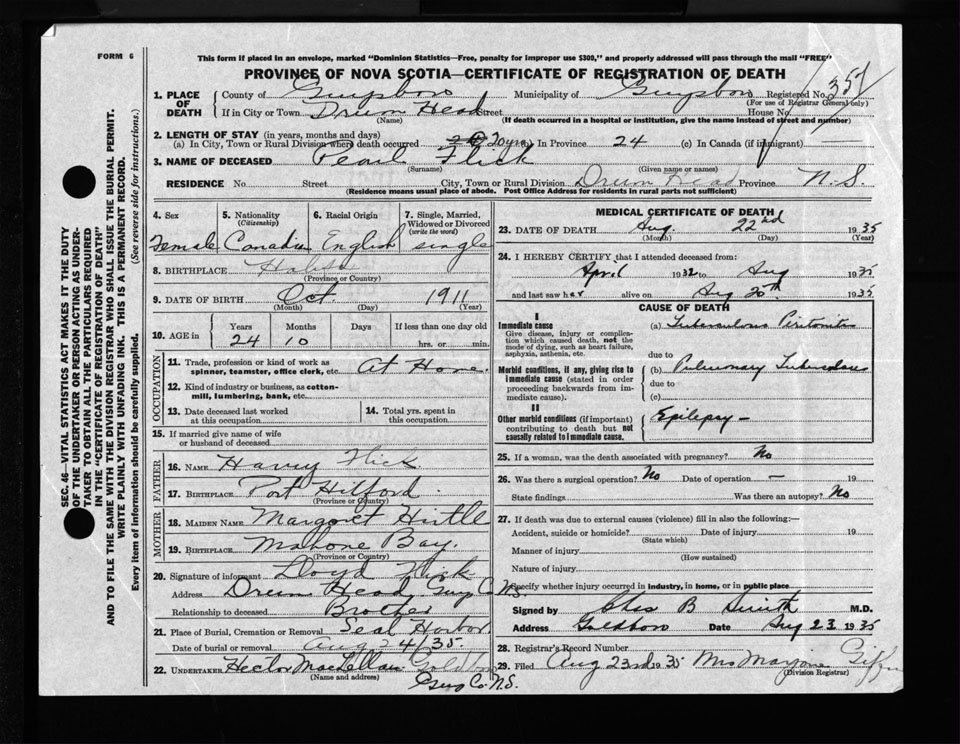 FORM 6
This form if placed in an envelope, marked "Dominion Statistics—Free, penalty for improper use $300," and properly addressed will pass through the mail "FREE"
PROVINCE OF NOVA SCOTIA—CERTIFICATE OF REGISTRATION OF DEATH
1. PLACE OF DEATH
County of Guysboro Municipality of Guysboro Registered No. 351
(For use of Registrar General only)
If in City or Town Drum Head Street House No.
(Name) (If death occurred in a hospital or institution, give the name instead of street and number)
2. LENGTH OF STAY (in years, months and days)
(a) In City, Town or Rural Division where death occurred 20 yrs (b) In Province 24 (c) In Canada (if immigrant) —
3. NAME OF DECEASED Pearl Flick
(Surname) (Given name or names)
RESIDENCE No. Street City, Town or Rural Division Drum Head Province N.S.
(Residence means usual place of abode. Post Office Address for residents in rural parts not sufficient)
4. Sex 5. Nationality 6. Racial Origin 7. Single, Married, Widowed or Divorced
(Citizenship) (write the word)
Female Canadian English single
8. BIRTHPLACE
(Province or Country)
9. DATE OF BIRTH Oct 1911
(Month) (Day) (Year)
10. AGE in Years Months Days If less than one day old
24 10 hrs. or min.
OCCUPATION
11. Trade, profession or kind of work as spinner, teamster, office clerk, etc. At Home.
12. Kind of industry or business, as cotton-mill, lumbering, bank, etc.
13. Date deceased last worked at this occupation 14. Total yrs. spent in this occupation
15. If married give name of wife or husband of deceased
FATHER
16. NAME Harvey Flick
17. BIRTHPLACE Port Hilford
(Province or Country)
MOTHER
18. MAIDEN NAME Margaret Hirtle
19. BIRTHPLACE Mahone Bay.
(Province or Country)
20. Signature of informant Lloyd Flick
Address Drum Head, Guy Co N.S.
Relationship to deceased Brother
21. Place of Burial, Cremation or Removal Seal Harbor
Date of burial or removal Aug 24/35
22. UNDERTAKER Hector MacLellan Goldboro
(Name and address)
Guy Co. N.S.
MEDICAL CERTIFICATE OF DEATH
23. DATE OF DEATH Aug. 22nd 1935
(Month) (Day) (Year)
24. I HEREBY CERTIFY that I attended deceased from:
April 1932 to Aug 1935
and last saw her alive on Aug 20th 1935
CAUSE OF DEATH
I
Immediate cause (a) Tuberculous Peritonitis
Give disease, injury or complication which caused death, not the mode of dying, such as heart failure, asphyxia, asthenia, etc.
due to
Morbid conditions, if any, giving rise to immediate cause (stated in order proceeding backwards from immediate cause).
(b) Pulmonary Tuberculosis
due to
(c)
II
Other morbid conditions (if important) contributing to death but not causally related to immediate cause.
Epilepsy —
25. If a woman, was the death associated with pregnancy? No
26. Was there a surgical operation? No Date of operation — 19
State findings Was there an autopsy? No
27. If death was due to external causes (violence) fill in also the following:—
Accident, suicide or homicide? Date of injury 19
(State which)
Manner of injury
(How sustained)
Nature of injury
Specify whether injury occurred in industry, in home, or in public place
Signed by Chas B Smith M.D.
Address Goldboro Date Aug 23 1935
28. Registrar's Record Number
29. Filed Aug 23rd 1935 Mrs Marjorie
(Division Registrar)
SEC. 46—VITAL STATISTICS ACT MAKES IT THE DUTY
OF THE UNDERTAKER OR PERSON ACTING AS UNDER-
TAKER TO OBTAIN ALL THE PARTICULARS REQUIRED
IN THE "CERTIFICATE OF REGISTRATION OF DEATH"
AND TO FILE THE SAME WITH THE DIVISION REGISTRAR WHO SHALL ISSUE THE BURIAL PERMIT.
WRITE PLAINLY WITH UNFADING INK. THIS IS A PERMANENT RECORD.
Every item of information should be carefully supplied. (See reverse side for instructions.)